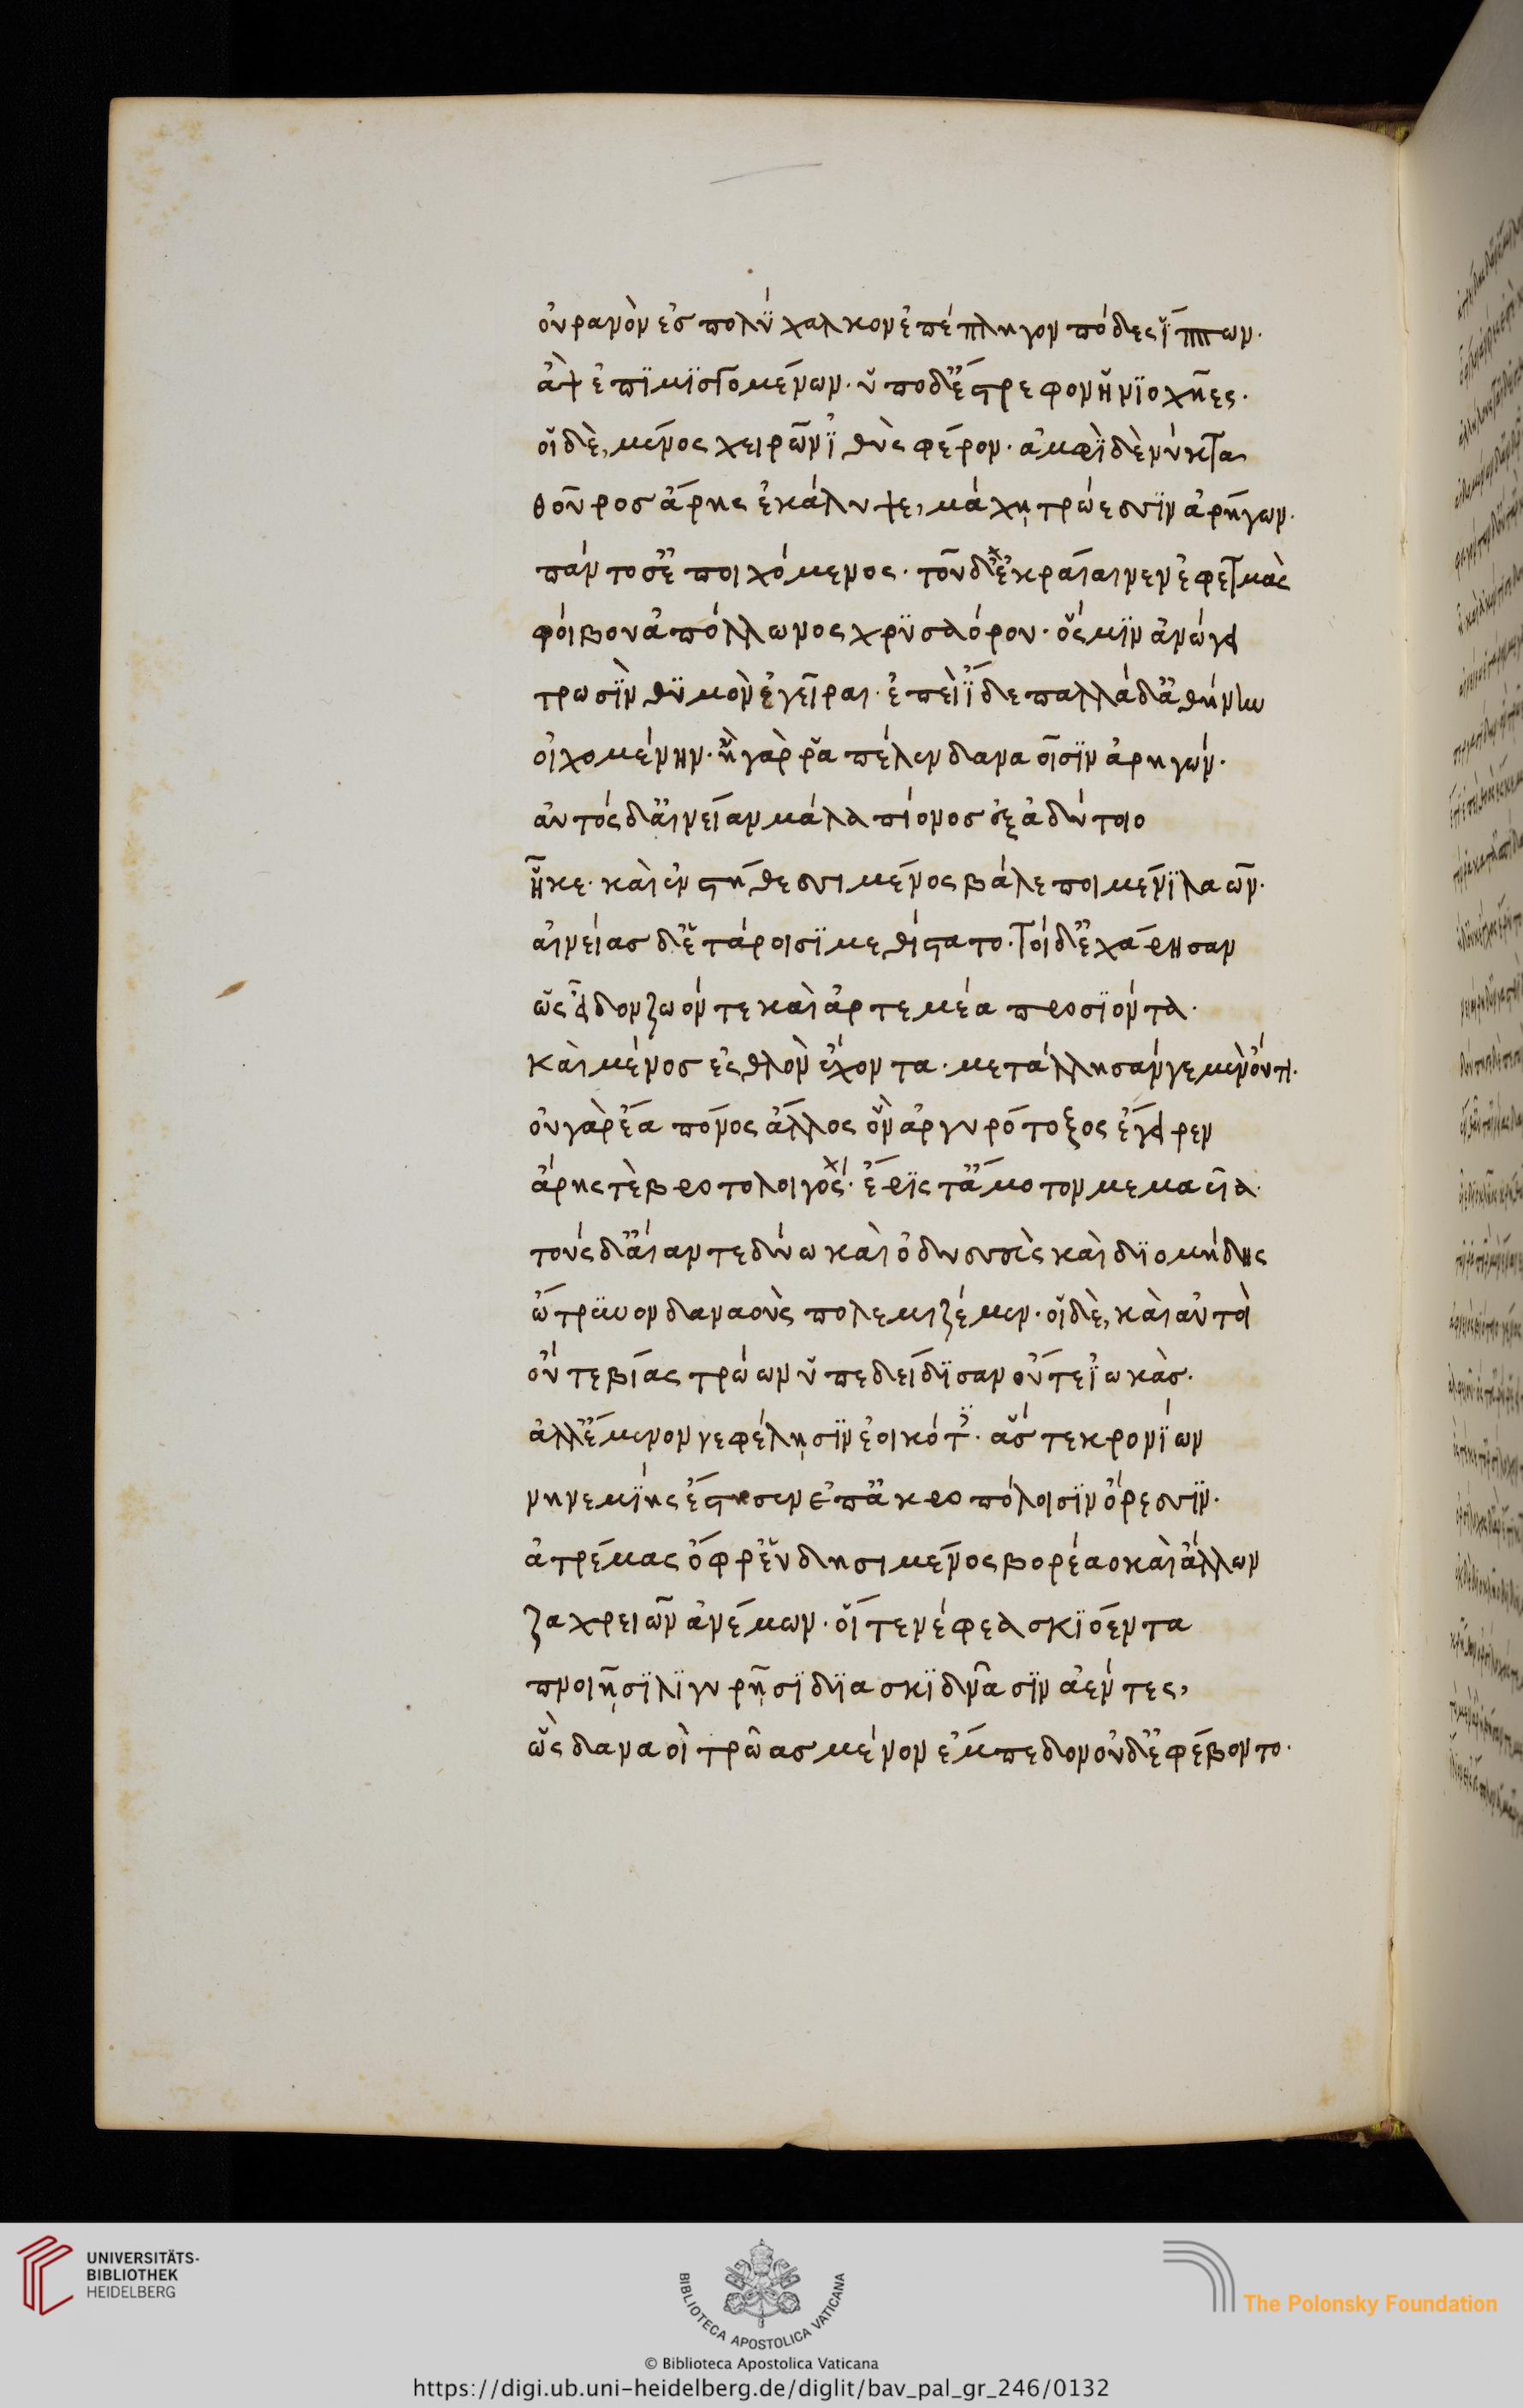 οὐρανὸν ἐς πολύχαλκον ἐπέπληγον πόδες ἵππων.
ἂψ ἐπιμισγομένων. ὑπὸ δ' ἔστρεφον ἡνιοχῆες.
οἳ δὲ, μένος χειρῶν ἰθὺς φέρον. ἀμφὶ δὲ νύκτα
θοῦρος ἄρης ἐκάλυψε, μάχῃ τρώεσσιν ἀρήγων.
πάντοσ' ἐποιχόμενος. τοῦ δ' ἐκραίαινεν ἐφετμὰς
φοίβου ἀπόλλωνος χρυσαόρου. ὅς μιν ἀνώγει
τρωσὶν θυμὸν ἐγεῖραι. ἐπεὶ ἴδε παλλάδ' ἀθήνην
οἰχομένην. ἣ γάρ ῥα πέλεν δαναοῖσιν ἀρηγών.
αὐτός δ' αἰνείαν μάλα πίονος ἐξ ἀδύτοιο
ἧκε. καὶ ἐν στήθεσσι μένος βάλε ποιμένι λαῶν.
αἰνείας δ' ἑτάροισι μεθίστατο. τοὶ δ' ἐχάρησαν
ὡς εἶδον ζωόν τε καὶ ἀρτεμέα προσιόντα.
καὶ μένος ἐσθλὸν ἔχοντα. μετάλλησάν γε μὲν οὔτι.
οὐ γὰρ ἔα πόνος ἄλλος ὃν ἀργυρότοξος ἔγειρεν
ἄρης τὲ βροτολοιγός. ἔρις τ' ἄμοτον μεμαῖα.
τοὺς δ' αἴαντε δύω καὶ ὀδυσσεὺς καὶ διομήδης
ὤτρυνον δαναοὺς πολεμιζέμεν. οἳ δὲ, καὶ αὐτοὶ
οὔτε βίας τρώων ὑπεδείδισαν οὔτε ἰωκάς.
ἀλλ' ἔμενον νεφέλῃσιν ἐοικότ. ἅς τε κρονίων
νηνεμίης ἔστησεν ἐπ' ἀκροπόλοισιν ὄρεσσιν.
ἀτρέμας ὄφρ' εὕδησι μένος βορέαο καὶ ἄλλων
ζαχρειῶν ἀνέμων. οἵ τε νέφεα σκιόεντα
πνοιῇσι λιγυρῇσι διασκιδνᾶσιν ἀέντες,
ὣς δαναοὶ τρῶας μένον ἔμπεδον οὐδ' ἐφέβοντο.
UNIVERSITÄTS-
BIBLIOTHEK
HEIDELBERG
BIBLIOTECA APOSTOLICA VATICANA
The Polonsky Foundation
© Biblioteca Apostolica Vaticana
https://digi.ub.uni-heidelberg.de/diglit/bav_pal_gr_246/0132